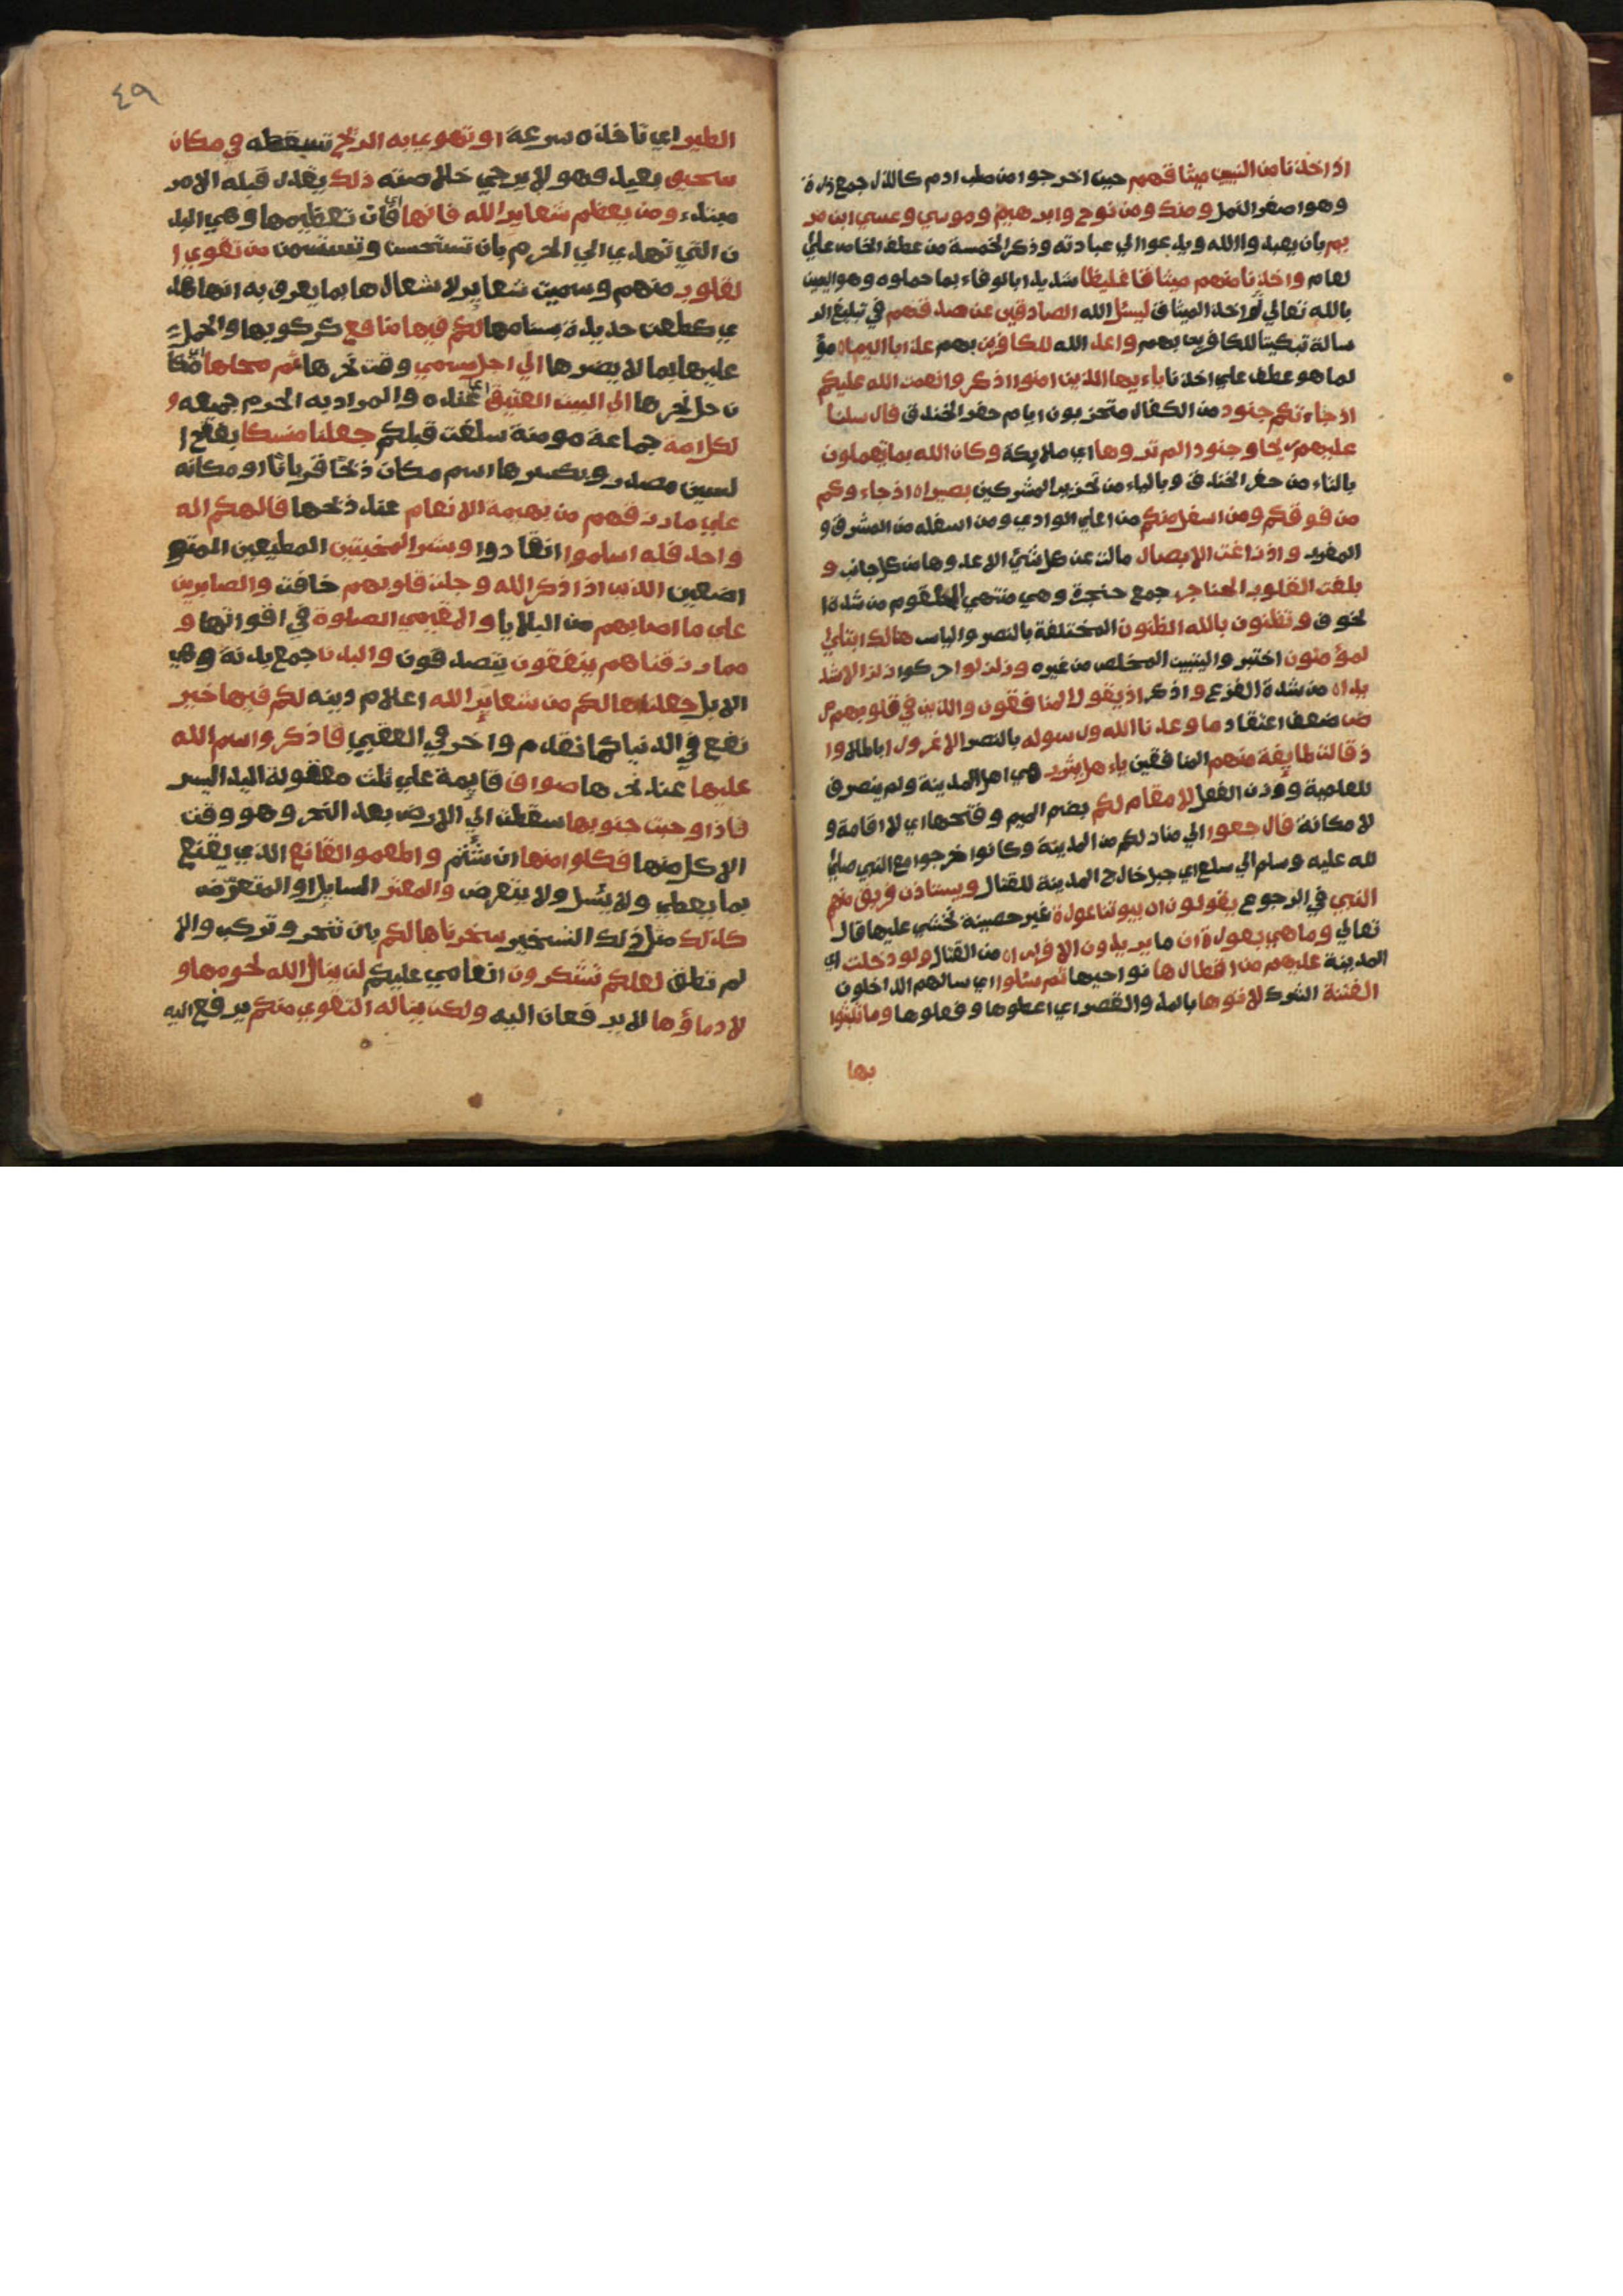 اذ اخذنا من النبيين ميثاقهم حين اخرجوا من صلب ادم كالذر جمع ذرة
وهو اصغر النمل ومنك ومن نوح وابرهيم وموسي وعيسي ابن مر
يم بان يعبدوا الله ويدعوا الي عبادته وذكر الخمسة من عطف الخاص علي
لعام واخذنا منهم ميثاقا غليظا شديدا بالوفاء بما حملوه وهو اليمين
بالله تعالي ثم اخذ الميثاق ليسئل الله الصادقين عن صدقهم في تبليغ الر
سالة تبكيتا للكافرين بهم واعد الله للكافرين بهم عذابا اليما مؤ
لما هو عطف علي اخذنا ياءيها الذين امنوا اذكروا نعمت الله عليكم
اذ جاءتكم جنود من الكفار متحزبون ايام حفر الخندق فارسلنا
عليهم ريحا وجنودا لم تروها اي ملايكة وكان الله بما تعملون
بالتاء من حفر الخندق وبالياء من تحزيب المشركين بصيرا اذ جاءوكم
من فوقكم ومن اسفل منكم من اعلي الوادي ومن اسفله من المشرق و
المغرب واذ زاغت الابصار مالت عن كل شئ الا عدوها من كل جانب و
بلغت القلوب الحناجر جمع حنجرة وهي منتهي الحلقوم من شدة ا
لخوف وتظنون بالله الظنون المختلفة بالنصر والياس هنالك ابتلي ا
لمؤمنون اختبروا ليتبين المخلص من غيره وزلزلوا حركوا زلزالا شد
يدا من شدة الفزع واذكر اذ يقول المنافقون والذين في قلوبهم مر
ض ضعف اعتقاد ما وعدنا الله ورسوله بالنصر الا غرورا باطلا وا
ذ قالت طايفة منهم المنافقين ياءهل يثرب هي اهل المدينة ولم ينصرف
للعلمية ووزن الفعل لا مقام لكم بضم الميم وفتحها اي لا اقامة و
لا مكانة فارجعوا الي منازلكم من المدينة وكانوا خرجوا مع النبي صلي ا
لله عليه وسلم الي سلع اي جبل خارج المدينة للقتال ويستاذن فريق منهم
النبي في الرجوع يقولون ان بيوتنا عورة غير حصينة نخشي عليها قال
تعالي وما هي بعورة ان ما يريدون الا فرارا من القتال ولو دخلت اي
المدينة عليهم من اقطارها نواحيها ثم سئلوا اي سالهم الداخلون
الفتنة الشرك لاتوها بالمد والقصر اي اعطوها وفعلوها وما تلبثوا
بها
٤٩
الطير اي تاخذه بسرعة او تهوي به الريح تسقطه في مكان
سحيق بعيد فهو لا يرجي خلاصه ذلك يقدر قبله الامر
مبتدء ومن يعظم شعاير الله فانها اي فان تعظيمها وهي البد
ن التي تهدي الي الحرم بان تستحسن وتستسمن من تقوي ا
لقلوب منهم وسميت شعاير لاشعارها بما يعرف به انها هد
ي كطعن حديدة بسنامها لكم فيها منافع كركوبها والحمل
عليها بما لا يضرها الي اجل مسمي وقت نحرها ثم محلها مكا
ن حل نحرها الي البيت العتيق اي عنده والمراد به الحرم جميعه و
لكل امة جماعة مومنة سلفت قبلكم جعلنا منسكا بفتح ا
لسين مصدر وبكسرها اسم مكان ذبحا قربانا او مكانه
علي ما رزقهم من بهيمة الانعام عند ذبحها فالهكم اله
واحد فله اسلموا انقادوا وبشر المخبتين المطيعين المتو
اضعين الذين اذا ذكر الله وجلت قلوبهم خافت والصابرين
علي ما اصابهم من البلايا والمقيمي الصلوة في اوقاتها و
مما رزقناهم ينفقون يتصدقون والبدن جمع بدنة وهي
الابل جعلناها لكم من شعاير الله اعلام دينه لكم فيها خير
نفع في الدنيا كما تقدم واخر في العقبي فاذكروا اسم الله
عليها عند نحرها صواف قايمة علي ثلث معقولة اليد اليسر
فاذا وجبت جنوبها سقطت الي الارض بعد النحر وهو وقت
الاكل منها فكلوا منها ان شئتم واطعموا القانع الذي يقنع
بما يعطي ولا يسئل ولا يتعرض والمعتر السايل او المتعرض
كذلك مثل ذلك التسخير سخرناها لكم بان تنحر وتركب والا
لم تطق لعلكم تشكرون انعامي عليكم لن ينال الله لحومها و
لا دماؤها لا يرفعان اليه ولكن يناله التقوي منكم يرفع اليه